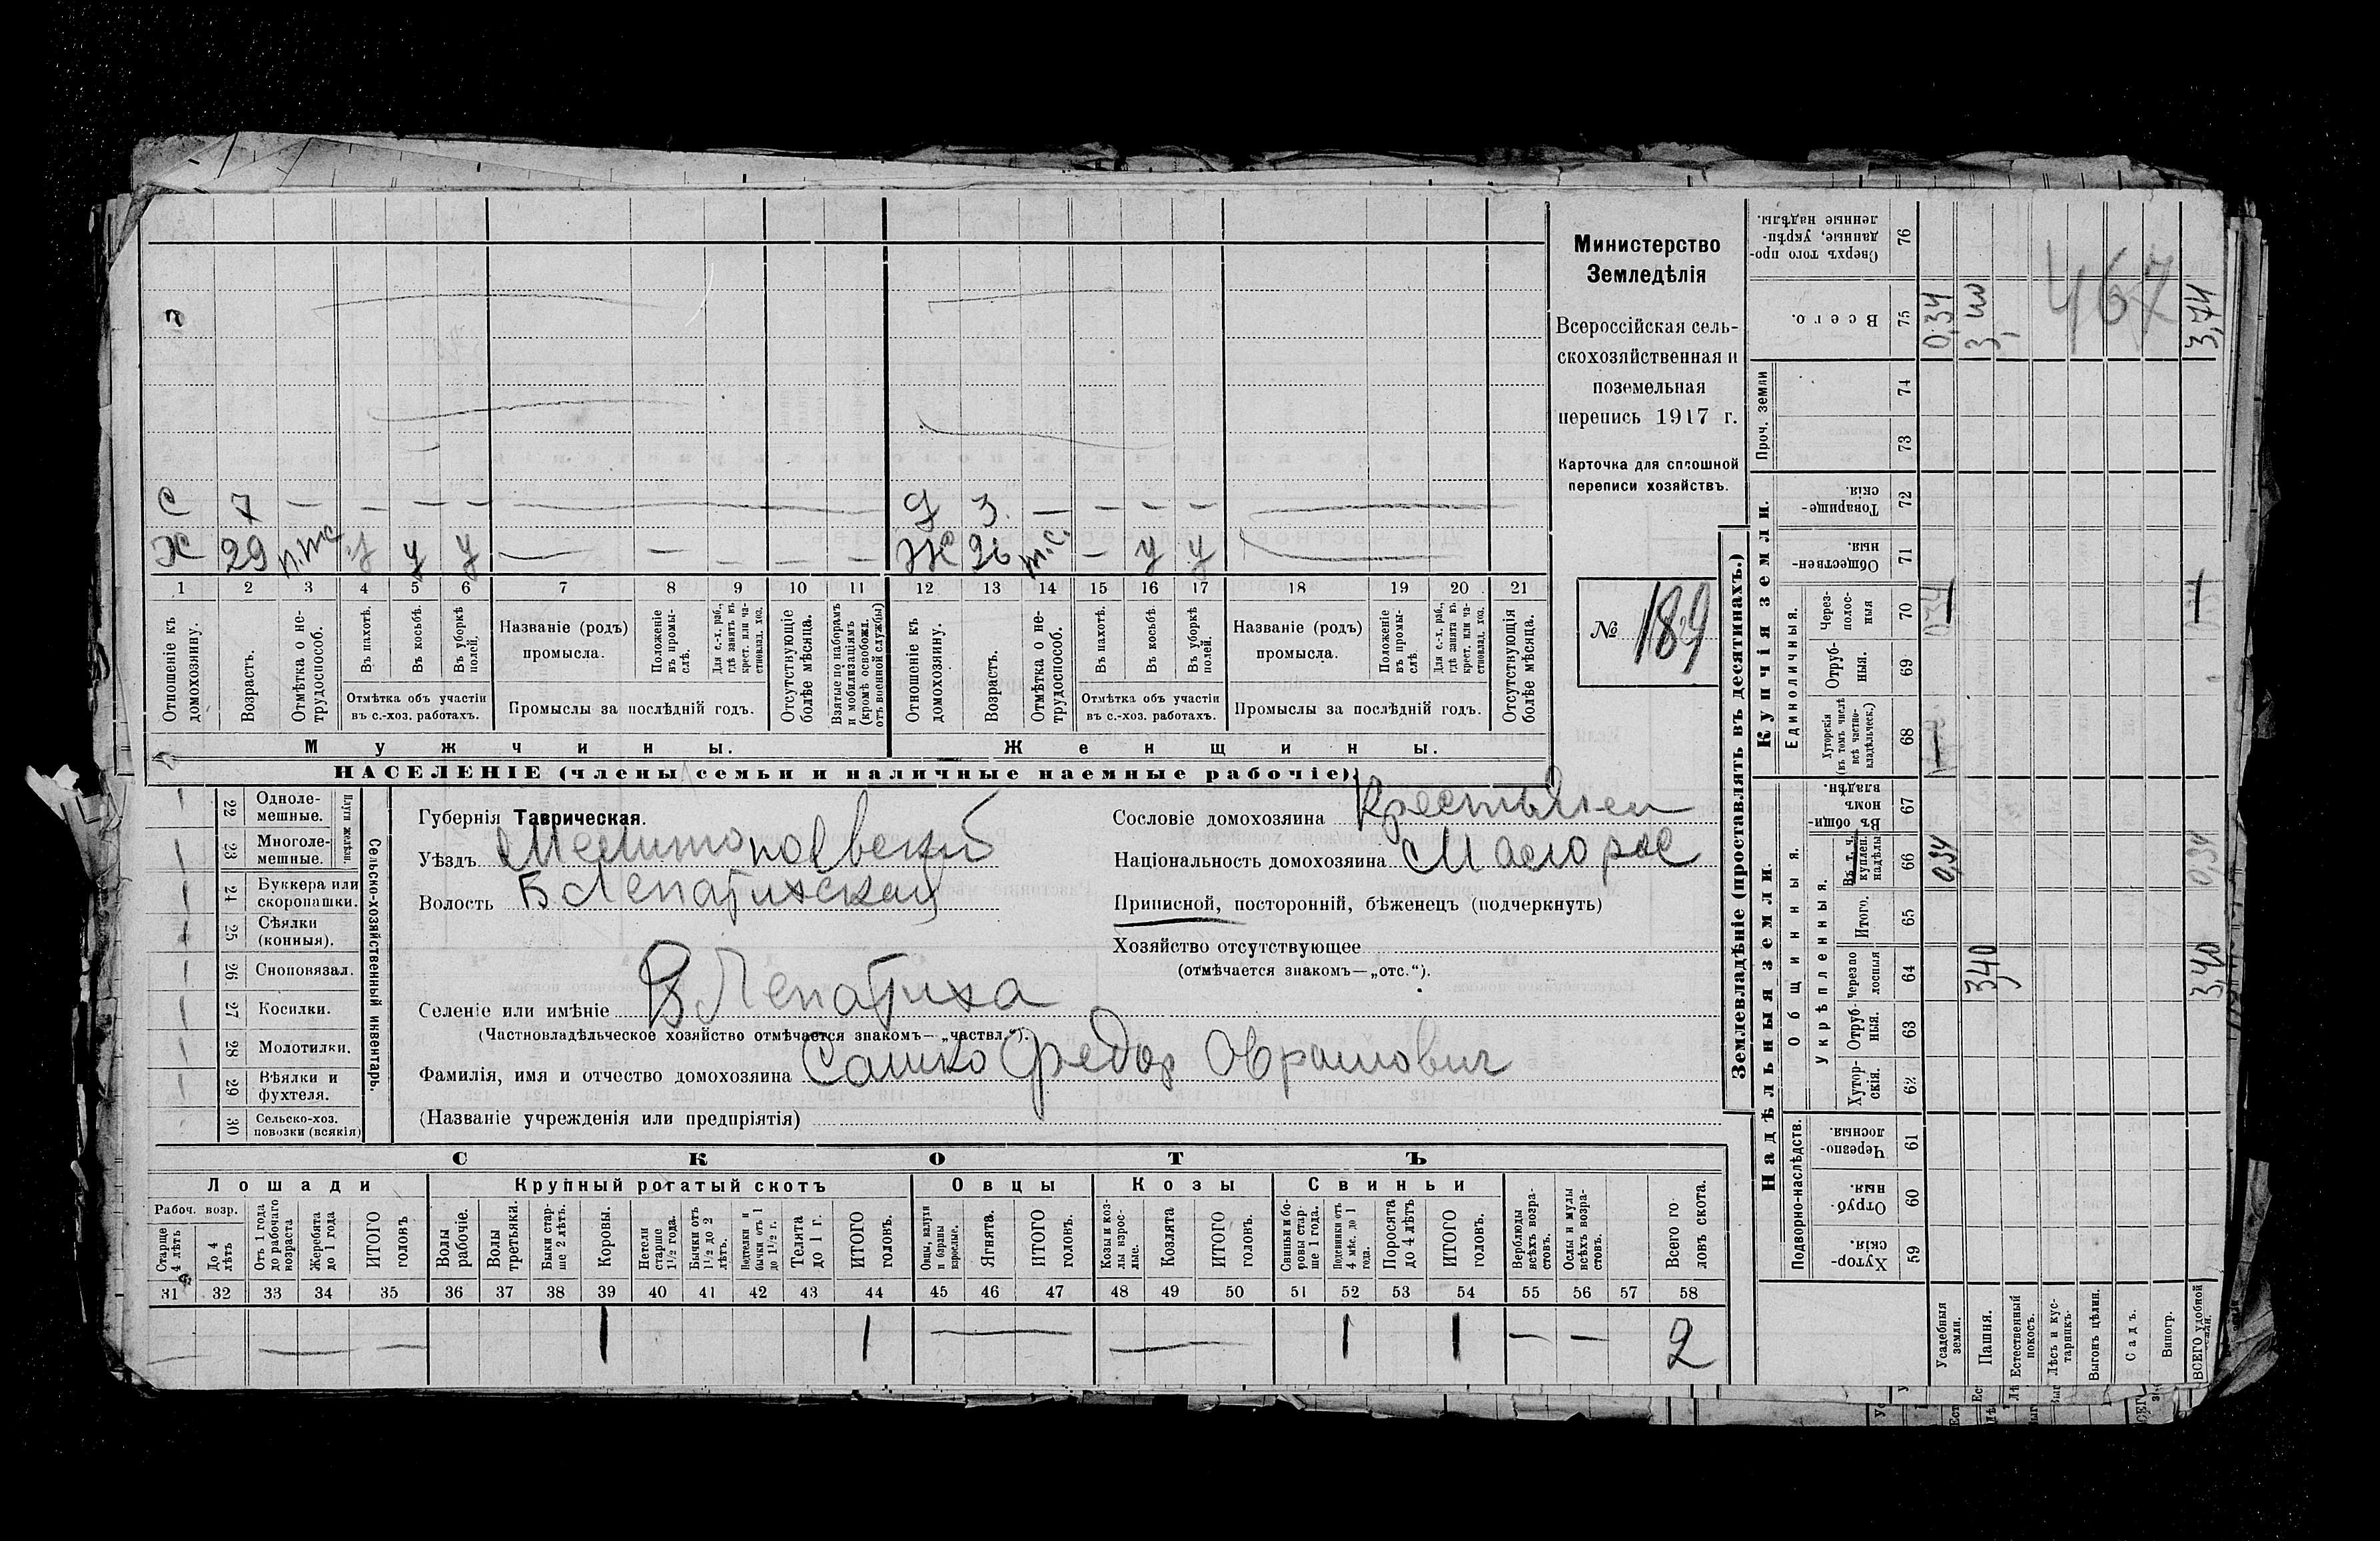 С 7 — — — — — Д 3 — — — — —
Х 29 п.тс у у у — — — — — Ж 26 т.с. — у у —
1 2 3 4 5 6 7 8 9 10 11 12 13 14 15 16 17 18 19 20 21
Отношеніе къ домохозяину.
Возрастъ.
Отмѣтка о не-трудоспособ.
Въ пахотѣ.
Въ косьбѣ.
Въ уборкѣ полей.
Отмѣтка объ участіи въ с.-хоз. работахъ.
Названіе (родъ) промысла.
Положеніе въ промы-слѣ.
Для с.-х. раб., гдѣ занятъ въ крест. или ча-стновлад. хоз.
Промыслы за послѣдній годъ.
Отсутствующіе болѣе мѣсяца.
Взятые по наборамъ и мобилизаціямъ (кромѣ освобожд. отъ военной службы)
Отношеніе къ домохозяину.
Возрастъ.
Отмѣтка о не-трудоспособ.
Въ пахотѣ.
Въ косьбѣ.
Въ уборкѣ полей.
Отмѣтка объ участіи въ с.-хоз. работахъ.
Названіе (родъ) промысла.
Положеніе въ промы-слѣ
Для с.-х. раб., гдѣ занята въ крест. или ча-стновлад. хоз.
Промыслы за послѣдній годъ.
Отсутствующія болѣе мѣсяца.
Мужчины. Женщины.
НАСЕЛЕНІЕ (члены семьи и наличные наемные рабочіе).
Министерство
Земледѣлія
Всероссійская сель-
скохозяйственная и
поземельная
перепись 1917 г.
Карточка для сплошной
переписи хозяйствъ.
№ 189
22 Одноле-мешные.
23 Многоле-мешные.
Плуги желѣзн
24 Буккера или скоропашки.
25 Сѣялки (конныя).
26 Сноповязал.
27 Косилки.
28 Молотилки.
29 Вѣялки и фухтеля.
30 Сельско-хоз. повозки (всякія)
Сельско-хозяйственный инвентарь.
Губернія Таврическая.
Уѣздъ Мелитопольвский
Волость Б Лепатихская
Селеніе или имѣніе В Лепатиха
(Частновладѣльческое хозяйство отмѣчается знакомъ—„частвл.“).
Фамилія, имя и отчество домохозяина Сашко Федор Оврамович
(Названіе учрежденія или предпріятія)
Сословіе домохозяина Крестьянен
Національность домохозяина Малорос
Приписной, посторонній, бѣженецъ (подчеркнуть)
Хозяйство отсутствующее
(отмѣчается знакомъ—„отс.“).
СКОТЪ
Лошади Крупный рогатый скотъ Овцы Козы Свиньи
Рабоч. возр.
Старше 4 лѣтъ
До 4 лѣтъ
Отъ 1 года до рабочаго возраста
Жеребята до 1 года
ИТОГО головъ
Волы рабочіе.
Волы третьяки.
Быки стар-ше 2 лѣтъ.
Коровы.
Нетели старше 1½ года.
Бычки отъ 1½ до 2 лѣтъ.
Подтелки и бычки отъ 1 до 1½ г.
Телята до 1 г.
ИТОГО головъ.
Овцы, валухи и бараны взрослые.
Ягнята.
ИТОГО головъ.
Козы и коз-лы взрос-лые.
Козлята
ИТОГО головъ.
Свиньи и бо-ровы стар-ше 1 года.
Подсвинки отъ 4 мѣс. до 1 года.
Поросята до 4 лѣтъ
ИТОГО головъ.
Верблюды всѣхъ возра-стовъ.
Ослы и мулы всѣхъ возра-стовъ.
Всего го-ловъ скота.
31 32 33 34 35 36 37 38 39 40 41 42 43 44 45 46 47 48 49 50 51 52 53 54 55 56 57 58
— — — 1 1 — — 1 1 — — 2
Землевладѣніе (проставлять въ десятинахъ.)
Надѣльныя земли. Купчія земли. Проч. земли
Подворно-наслѣдств.
Общинныя.
Укрѣпленныя.
Единоличныя.
Хутор-скія. 59
Отруб-ныя. 60
Черезпо-лосныя. 61
Хутор-скія. 62
Отруб-ныя. 63
Черезпо-лосныя 64
Итого. 65
Въ т. ч. куплен. надѣлы 66
Въ общи-номъ владѣн. 67
Хуторскія (въ томъ числѣ всѣ частно-владѣльческ.) 68
Отруб-ныя. 69
Через-полос-ныя 70
Обществен-ныя. 71
Товарище-скія. 72
73
74
Всего. 75
Сверхъ того про-данные, укрѣп-ленные надѣлы. 76
Усадебныя земли. 0,34 034 0,34
Пашня. 340
Естественный покосъ.
Лѣсъ и кус-тарникъ.
Выгонъ цѣлин.
Садъ.
Виногр.
ВСЕГО удобной земли. 3,40 0,34 3,74
467